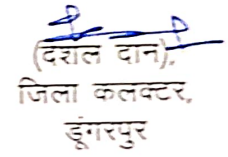 (दशल दान),
जिला कलक्टर,
डूंगरपुर